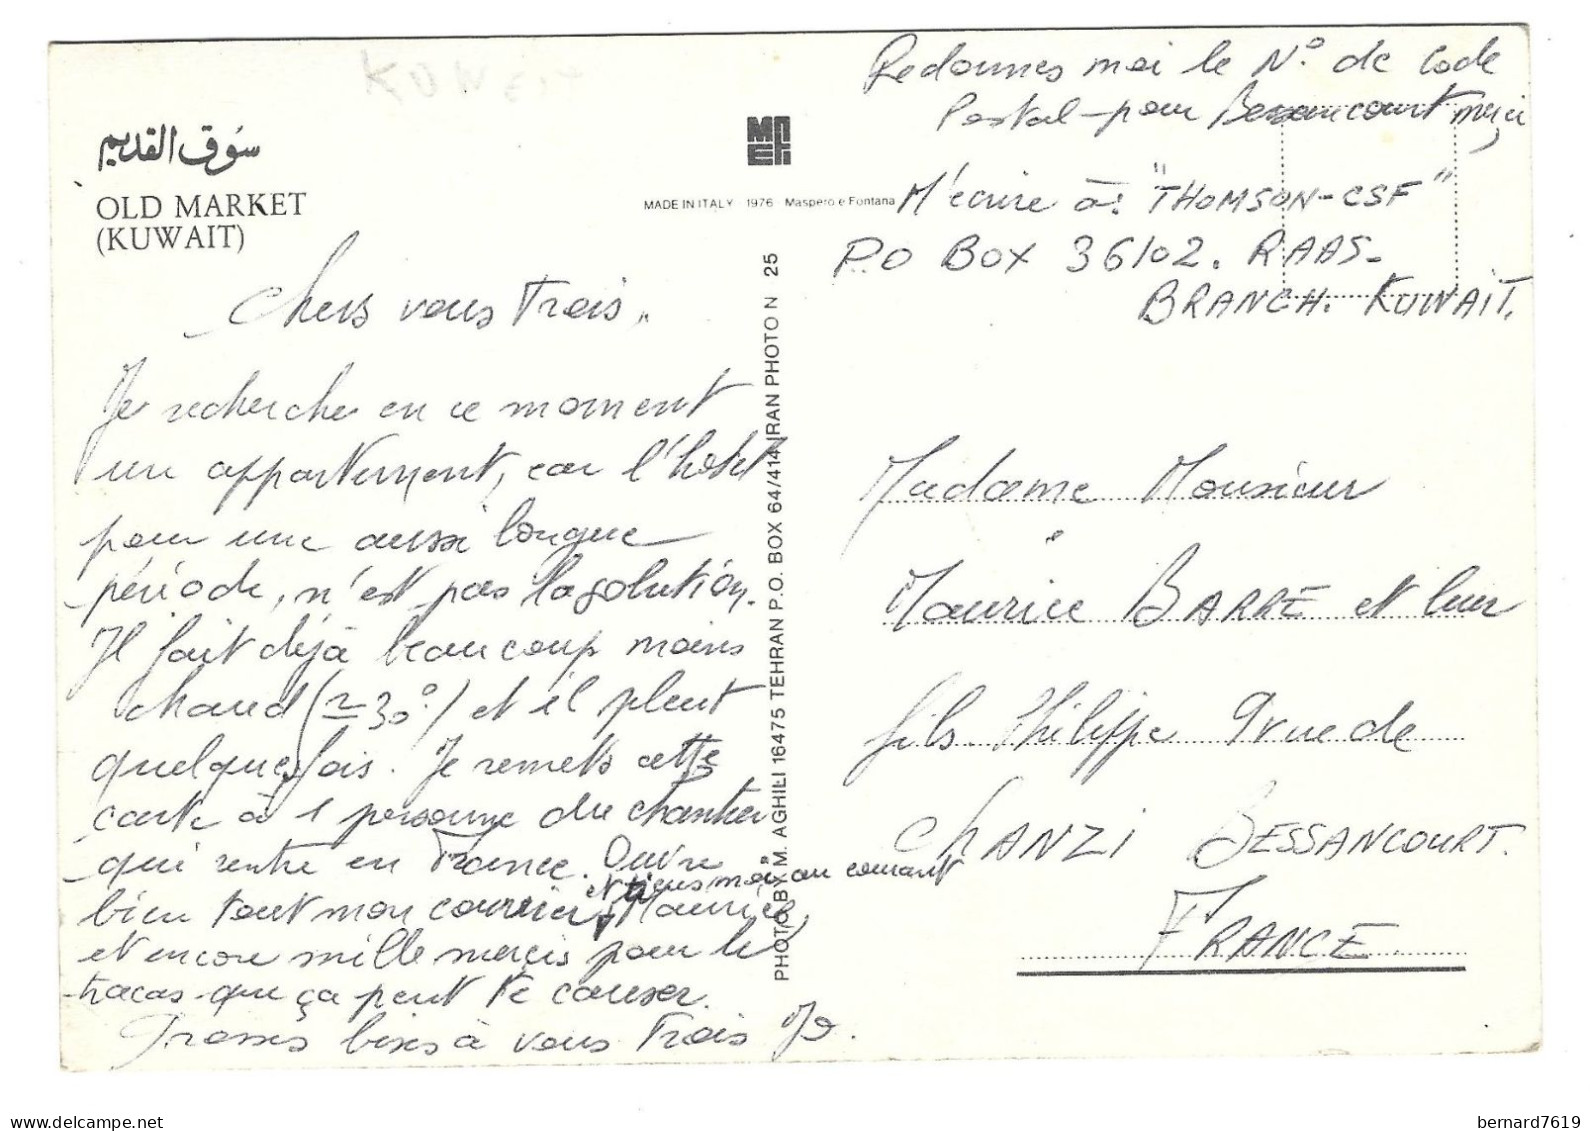 KUWEIT
سوق القديم
OLD MARKET
(KUWAIT)
MADE IN ITALY 1976 Maspero e Fontana
PHOTO BY M. AGHILI 16475 TEHRAN P.O. BOX 64/414 IRAN PHOTO N 25
Redonnes moi le N° de code
Postal - pour Bessancourt merci
M'écrire à: "THOMSON-CSF"
PO BOX 36102. RAAS-
BRANCH. KUWAIT.
Chers vous Trois,,
Je recherche en ce moment
un appartement, car l'hotel
pour une aussi longue
période, n'est pas la solution.
Il fait déjà beaucoup moins
chaud (≃30°) et il pleut
quelquesfois. Je remets cette
carte à 1 personne du chantier
qui rentre en France. Ouvre
bien tout mon courrier Maurice,
et tiens moi au courant
et encore mille mercis pour le
tracas que ça peut te causer.
Grosses bises à vous Trois Jo.
Madame Monsieur
Maurice BARRÉ et leur
fils Philippe 9 rue de
CHANZI BESSANCOURT.
FRANCE
bernard7619